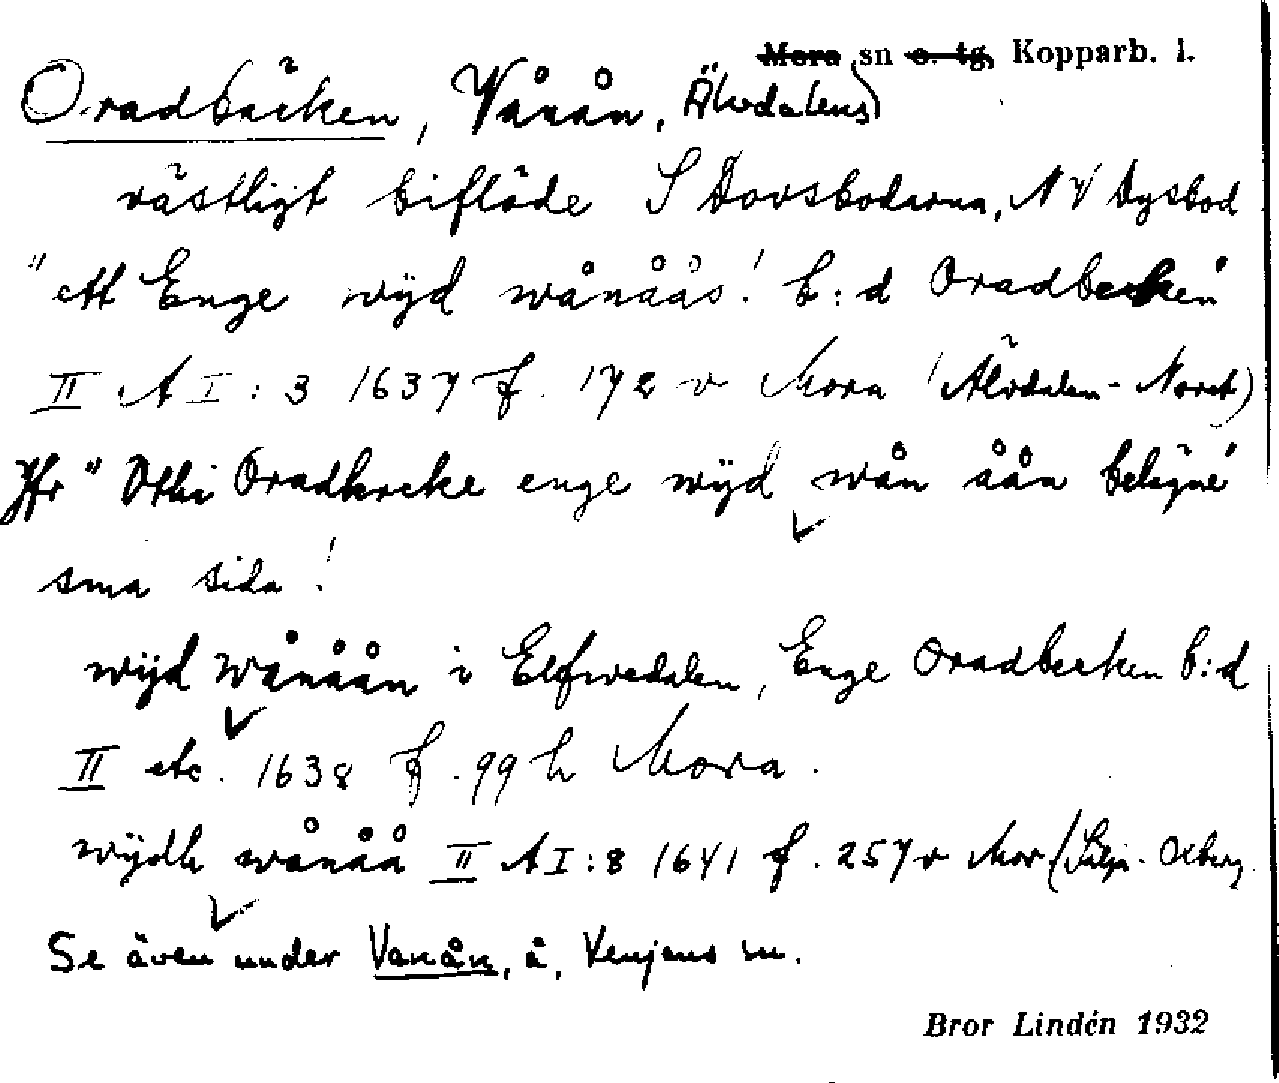 Mora sn o. tg, Kopparb. l.
Oradbäcken, Vånån, Älvdalens
västligt biflöde S Dovsbodarna, NV Dysbod
"ett Enge wÿd wånåås! b:d Oradbecken"
II A I:3 1637 f. 172 v Mora (Älvdalen-Noret)
Jfr "Othi Oradbecke enge wÿd wån åån belägne"
sma sida!
wÿd wånåån i Elfwedalen, Enge Oradbecken b:d
II etc. 1638 f. 99 h Mora.
wÿdh wånåå II A I:8 1641 f. 257 v Mor (Selja- Oxberg
Se även under Vanån, å, Venjans sn.
Bror Lindén 1932